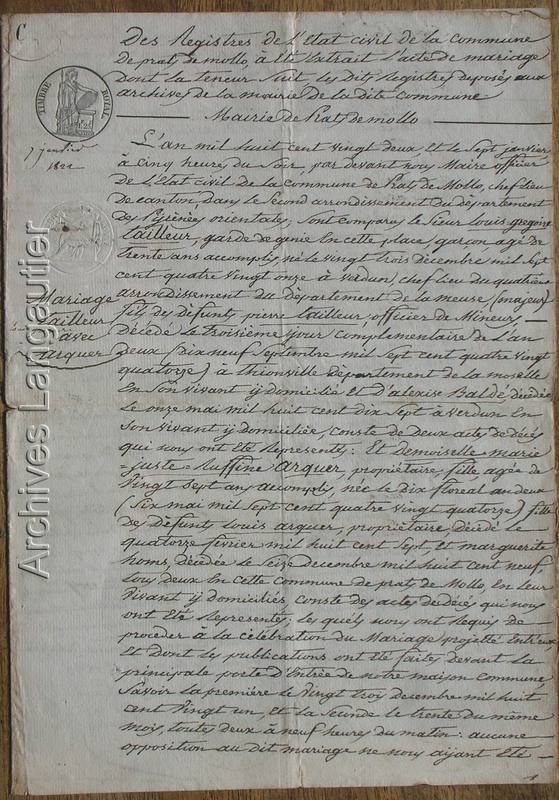 C
Des Registres de L'Etat civil de la Commune
de prats de mollo, à été Extrait l'acte de mariage
dont la teneur suit, les dits Registres deposés aux
archives de la mairie de la dite commune
TIMBRE ROYAL
Mairie de Prats de mollo
7 janvier
1822
L'an mil huit cent vingt deux et le Sept janvier
à Cinq heures du Soir, par devant nous Maire officier
de L'Etat civil de la commune de Prats de Mollo, chef lieu
de canton, dans le Second arrondissement du département
des Pyrénées orientales; sont comparus, le Sieur louis gregoire
tailleur, garde de génie En cette place, garçon agé de
trente ans accomplis, né le vingt trois décembre mil sept
cent quatre vingt onze à verdun, chef lieu du quatrième
arrondissement du département de la meuse, (majeur)
Mariage
tailleur
avec
arquer
fils des défunts pierre tailleur, officier de Mineurs,
décédé le troisième jour complémentaire de L'an
deux (dix neuf Septembre mil sept cent quatre vingt
quatorze) à thionville département de la moselle
En Son vivant y domicilié et D'alexise Baldé, décédée
le onze mai mil huit cent dix sept à verdun En
Son vivant y domiciliée, conste de deux actes de décès
qui nous ont Eté Représentés: Et Demoiselle marie
=juste=Ruffine Arquer, propriétaire, fille, agée de
Vingt Sept ans accomplis, née le Dix floreal an deux
(Six mai mil Sept cent quatre vingt quatorze) fille
des défunts Louis arquer, propriétaire, décédé le
quatorze fevrier mil huit cent Sept, et marguerite
homs, décédée le Seize decembre mil huit cent neuf
tous deux En Cette commune de prats de Mollo, En leur
Vivant y domiciliés, conste des actes de décès qui nous
ont Eté Représentés; les quels nous ont Requis de
procéder à la célébration du Mariage projetté Entr'eux
Et dont les publications ont été faites devant la
principale porte d'Entrée de notre maison commune
Savoir la première le Vingt trois decembre mil huit
cent Vingt un, et la Seconde le trente du même
mois, toutes deux à neuf heures du matin: aucune
opposition au dit mariage ne nous aijant Eté
Archives Langautier